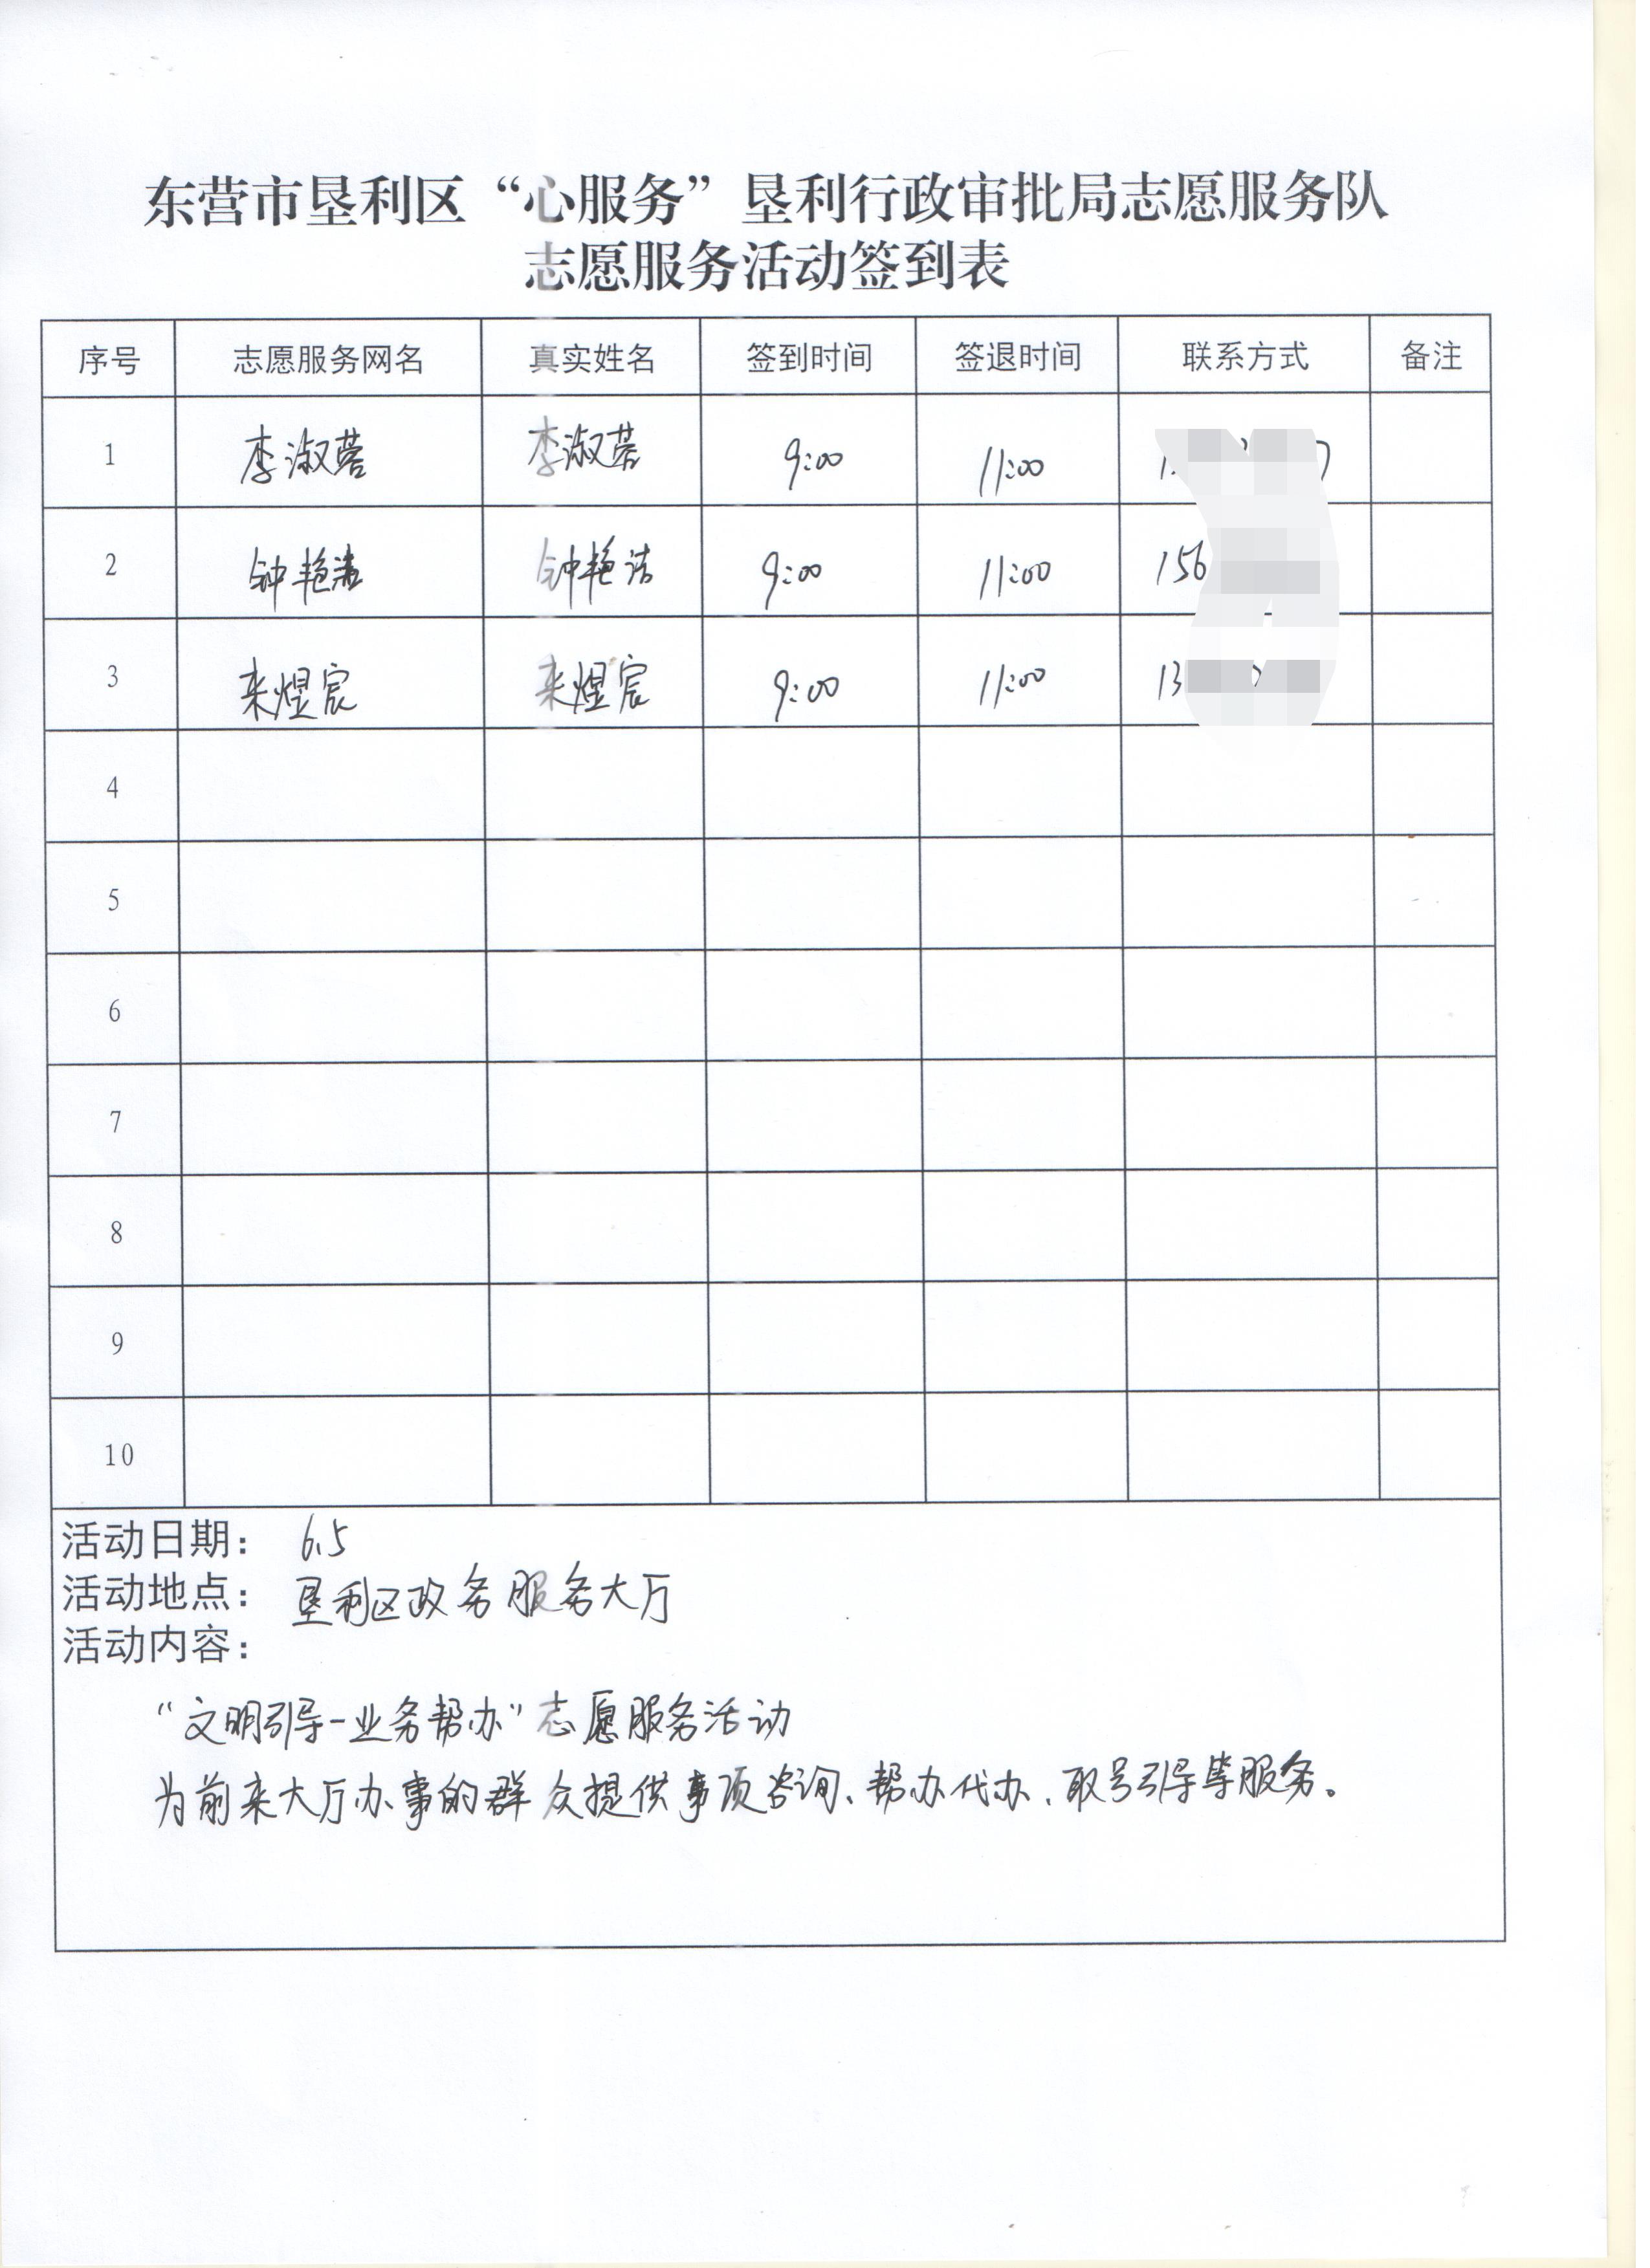 东营市垦利区“心服务”垦利行政审批局志愿服务队
志愿服务活动签到表
序号 志愿服务网名 真实姓名 签到时间 签退时间 联系方式 备注
1 李淑蓉 李淑蓉 9:00 11:00
2 钟艳洁 钟艳洁 9:00 11:00 156
3 来煜宸 来煜宸 9:00 11:00 13
4
5
6
7
8
9
10
活动日期： 6.5
活动地点： 垦利区政务服务大厅
活动内容：
“文明引导-业务帮办”志愿服务活动
为前来大厅办事的群众提供事项咨询、帮办代办、取号引导等服务。